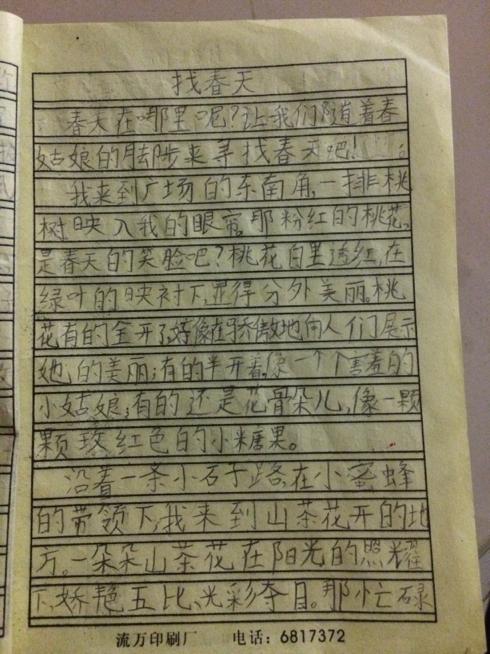 找春天
春天在哪里呢?让我们随着春
姑娘的脚步来寻找春天吧!
我来到广场的东南角,一排桃
树映入我的眼帘,那粉红的桃花,
是春天的笑脸吧?桃花白里透红,在
绿叶的映衬下,显得分外美丽。桃
花有的全开了,好像在骄傲地向人们展示
她的美丽;有的半开着,像一个个害羞的
小姑娘;有的还是花骨朵儿,像一颗
颗玫红色的小米糖果。
沿着一条小石子路,在小蜜蜂
的带领下,我来到山茶花开的地
方。一朵朵山茶花在阳光的照耀
下,娇艳五比,光彩夺目。那忙碌
流万印刷厂 电话:6817372